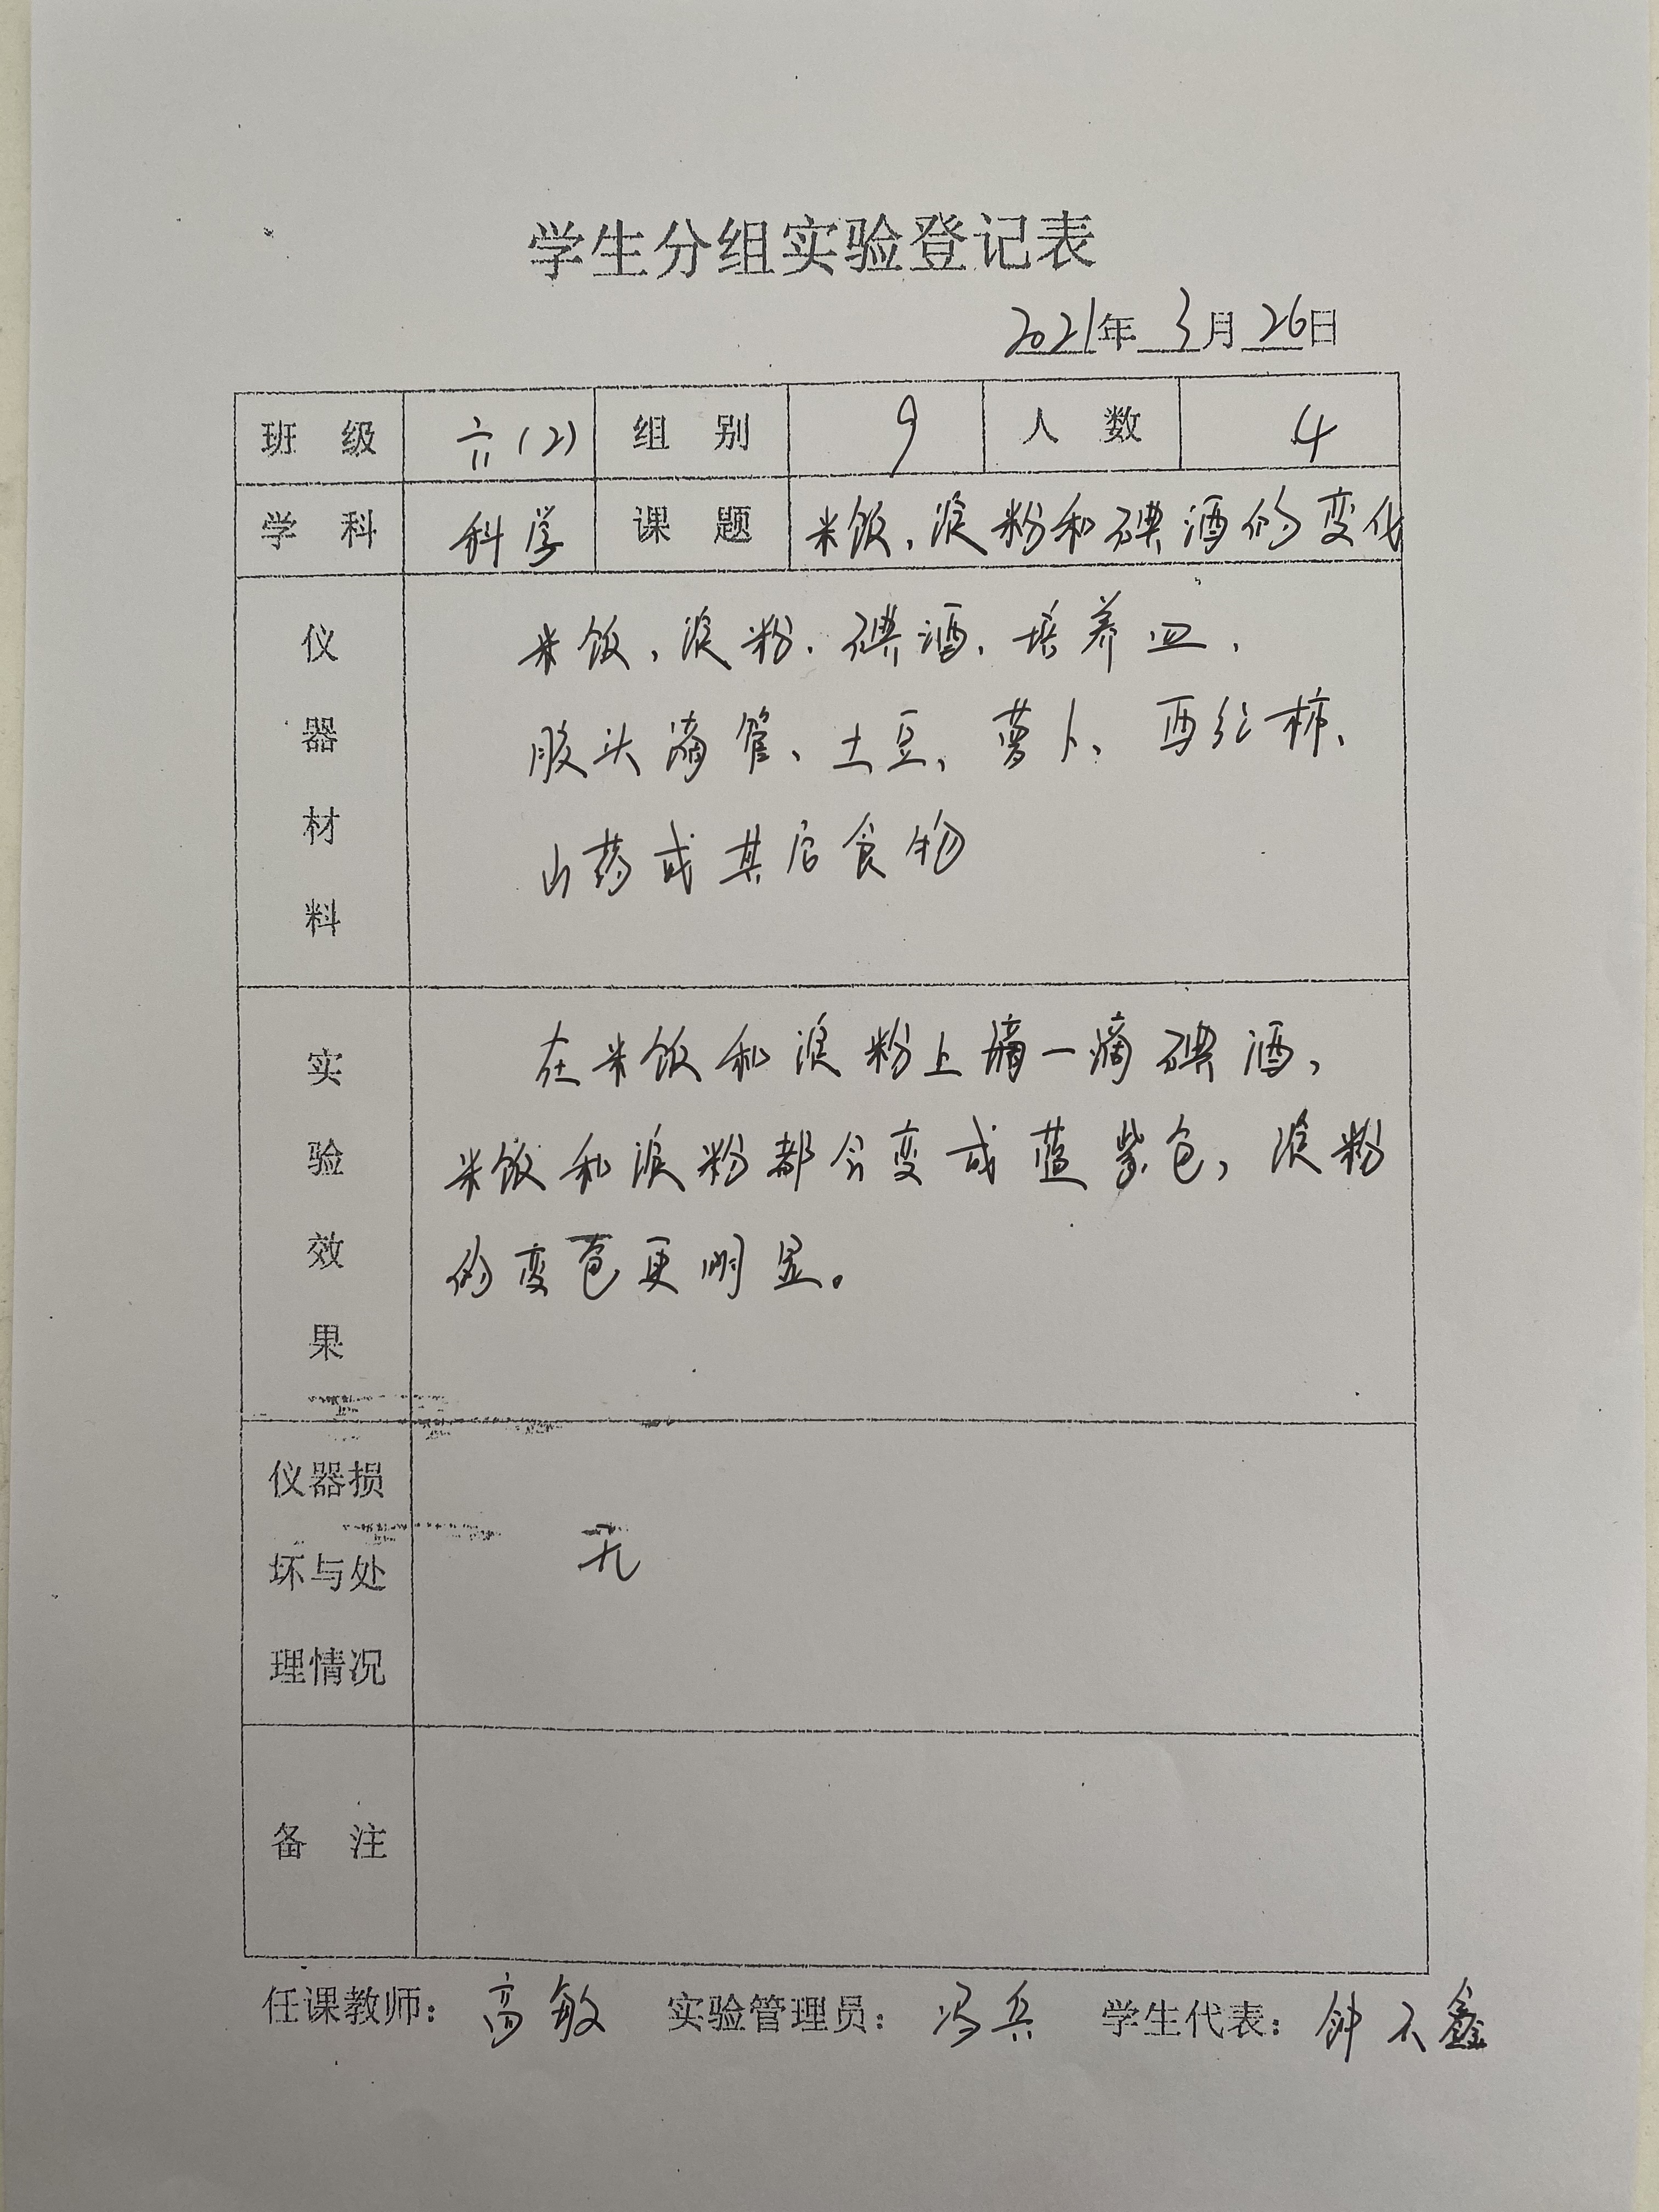 学生分组实验登记表
2021年 3月 26日
班 级 六(2) 组 别 9 人 数 4
学 科 科学 课 题 米饭、淀粉和碘酒的变化
仪器材料
米饭、淀粉、碘酒、培养皿、
胶头滴管、土豆、萝卜、西红柿、
山药或其它食物
实验效果
在米饭和淀粉上滴一滴碘酒，
米饭和淀粉都会变成蓝紫色，淀粉
的变色更明显。
仪器损
坏与处
理情况
无
备 注
任课教师： 高敏 实验管理员： 冯兵 学生代表： 钟不鑫